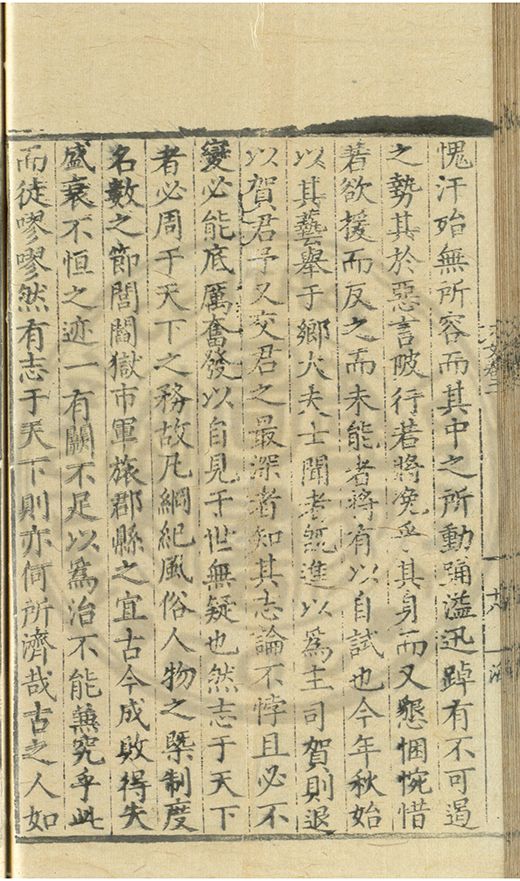 愧汗殆無所容而其中之所動踊溢迅踔有不可遏
之勢其於惡言陂行若將凂乎其身而又懇悃惋惜
若欲援而反之而未能者將有以自試也今年秋始
以其藝舉于鄉大夫士聞者旣進以爲主司賀則退
以賀君予又交君之最深者知其志論不悖且必不
變必能底厲奮發以自見于世無疑也然志于天下
者必周于天下之務故凡綱紀風俗人物之槩制度
名數之節閭閻獄市軍旅郡縣之宜古今成敗得失
盛衰不恒之迹一有闕不足以爲治不能兼究乎此
而徒嘐嘐然有志于天下則亦何所濟哉古之人如
十八